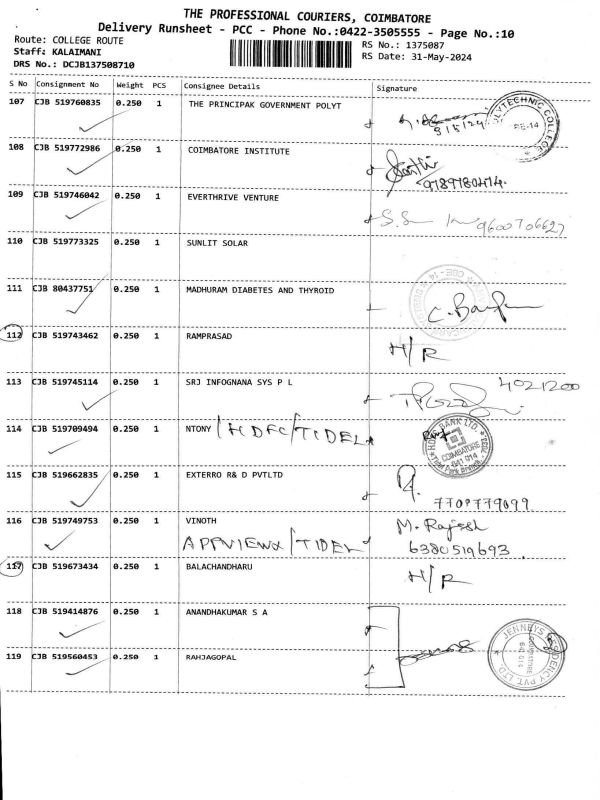 THE PROFESSIONAL COURIERS, COIMBATORE
Delivery Runsheet - PCC - Phone No.:0422-3505555 - Page No.:10
Route: COLLEGE ROUTE
Staff: KALAIMANI
DRS No.: DCJB137508710
RS No.: 1375087
RS Date: 31-May-2024
S No Consignment No Weight PCS Consignee Details Signature
107 CJB 519760835 0.250 1 THE PRINCIPAK GOVERNMENT POLYT
POLYTECHNIC COLLEGE
108 CJB 519772986 0.250 1 COIMBATORE INSTITUTE
9789780474.
109 CJB 519746042 0.250 1 EVERTHRIVE VENTURE
9600706627
110 CJB 519773325 0.250 1 SUNLIT SOLAR
111 CJB 80437751 0.250 1 MADHURAM DIABETES AND THYROID
112 CJB 519743462 0.250 1 RAMPRASAD H/R
113 CJB 519745114 0.250 1 SRJ INFOGNANA SYS P L
114 CJB 519709494 0.250 1 NTONY /HDFC/TIDEL
HDFC BANK LTD.
COIMBATORE
641 014
115 CJB 519662835 0.250 1 EXTERRO R& D PVTLTD
7708779099
116 CJB 519749753 0.250 1 VINOTH M. Rajesh
APPVIEWX/TIDEL 6380519693
117 CJB 519673434 0.250 1 BALACHANDHARU H/R
118 CJB 519414876 0.250 1 ANANDHAKUMAR S A
119 CJB 519560453 0.250 1 RAHJAGOPAL